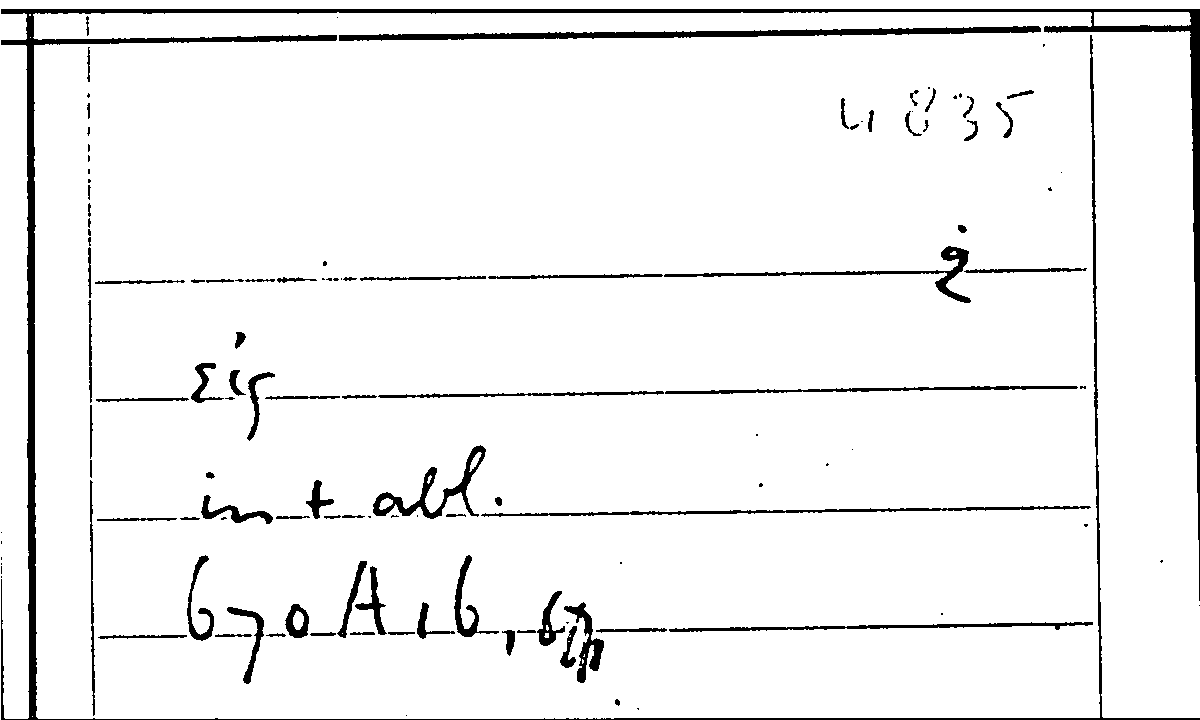 4835
εἰς
in + abl.
670 A 16,